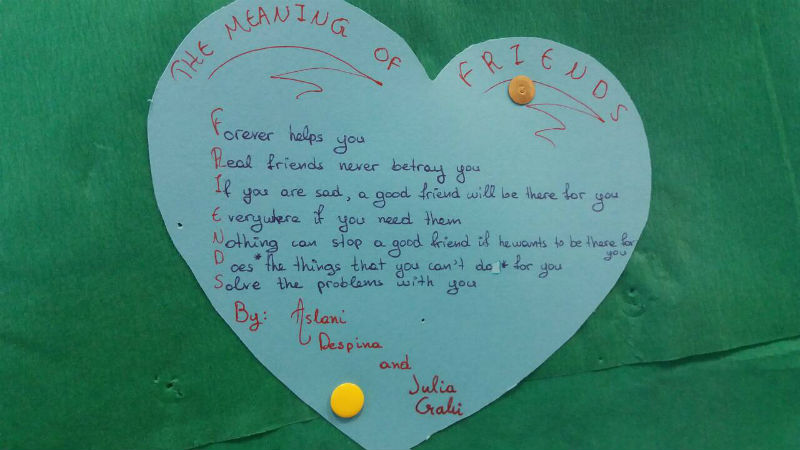 THE MEANING OF FRIENDS
Forever helps you
Real friends never betray you
If you are sad, a good friend will be there for you
Everywhere if you need them
Nothing can stop a good friend if he wants to be there for
you
Does *the things that you can't do* for you
Solve the problems with you
By: Aslani
Despina
and
Julia